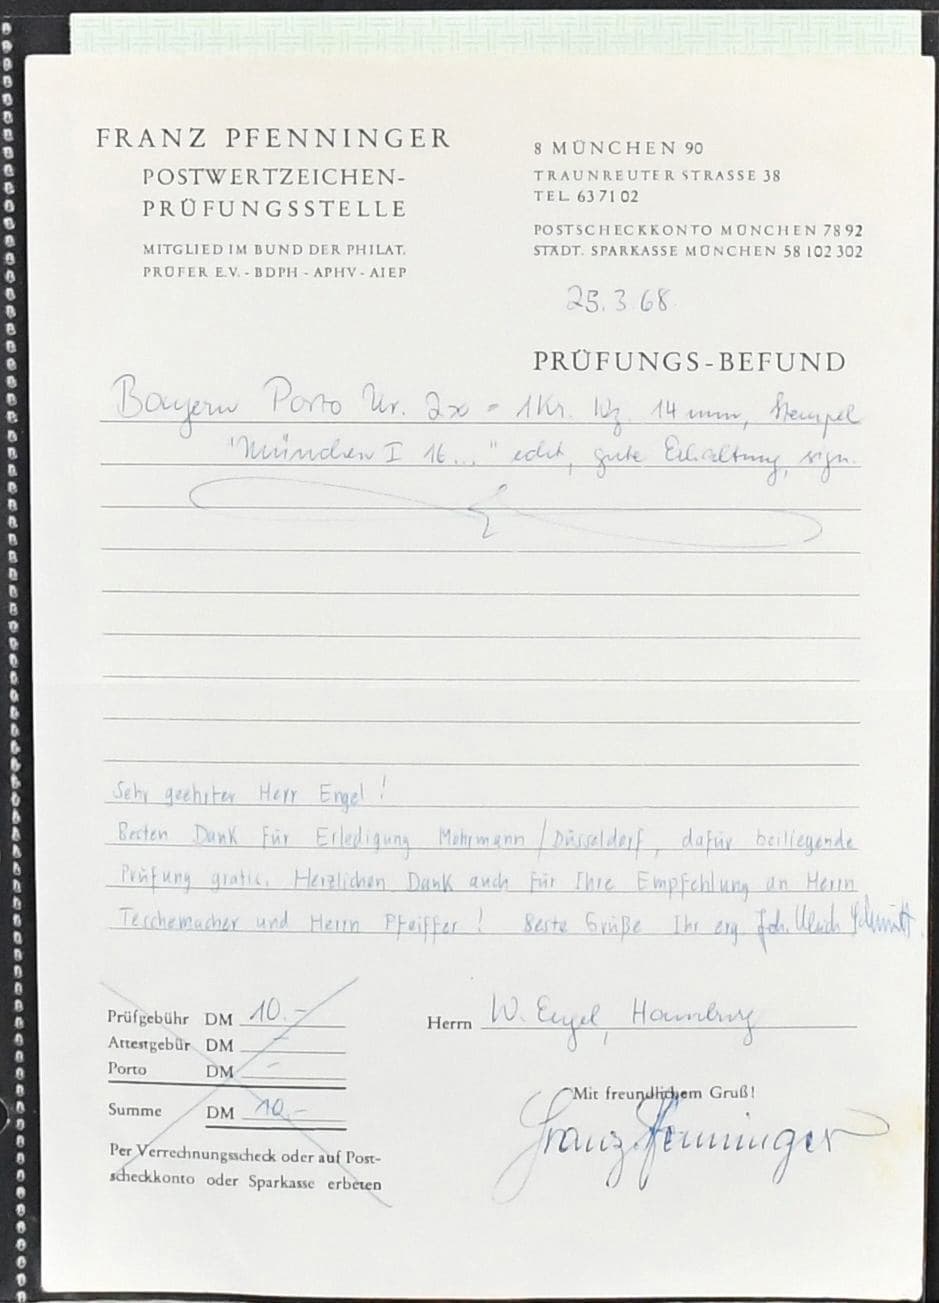 FRANZ PFENNINGER
POSTWERTZEICHEN-
PRÜFUNGSSTELLE
MITGLIED IM BUND DER PHILAT.
PRÜFER E.V. - BDPH - APHV - AIEP
8 MÜNCHEN 90
TRAUNREUTER STRASSE 38
TEL. 63 71 02
POSTSCHECKKONTO MÜNCHEN 78 92
STÄDT. SPARKASSE MÜNCHEN 58 102 302
25.3.68
PRÜFUNGS-BEFUND
Bayern Porto Nr. 2x = 1 Kr. Wz. 14 mm, Stempel
"München I 16..." echt, gute Erhaltung, sign.
Sehr geehrter Herr Engel!
Besten Dank für Erledigung Mohrmann/Düsseldorf, dafür beiliegende
Prüfung gratis. Herzlichen Dank auch für Ihre Empfehlung an Herrn
Teschemacher und Herrn Pfeiffer! Beste Grüße Ihr erg. Joh. Ulrich Schmitt
Prüfgebühr DM 10.-
Attestgebür DM -
Porto DM -
Summe DM 10.-
Per Verrechnungsscheck oder auf Post-
scheckkonto oder Sparkasse erbeten
Herrn W. Engel, Hamburg
Mit freundlichem Gruß!
Franz Pfenninger